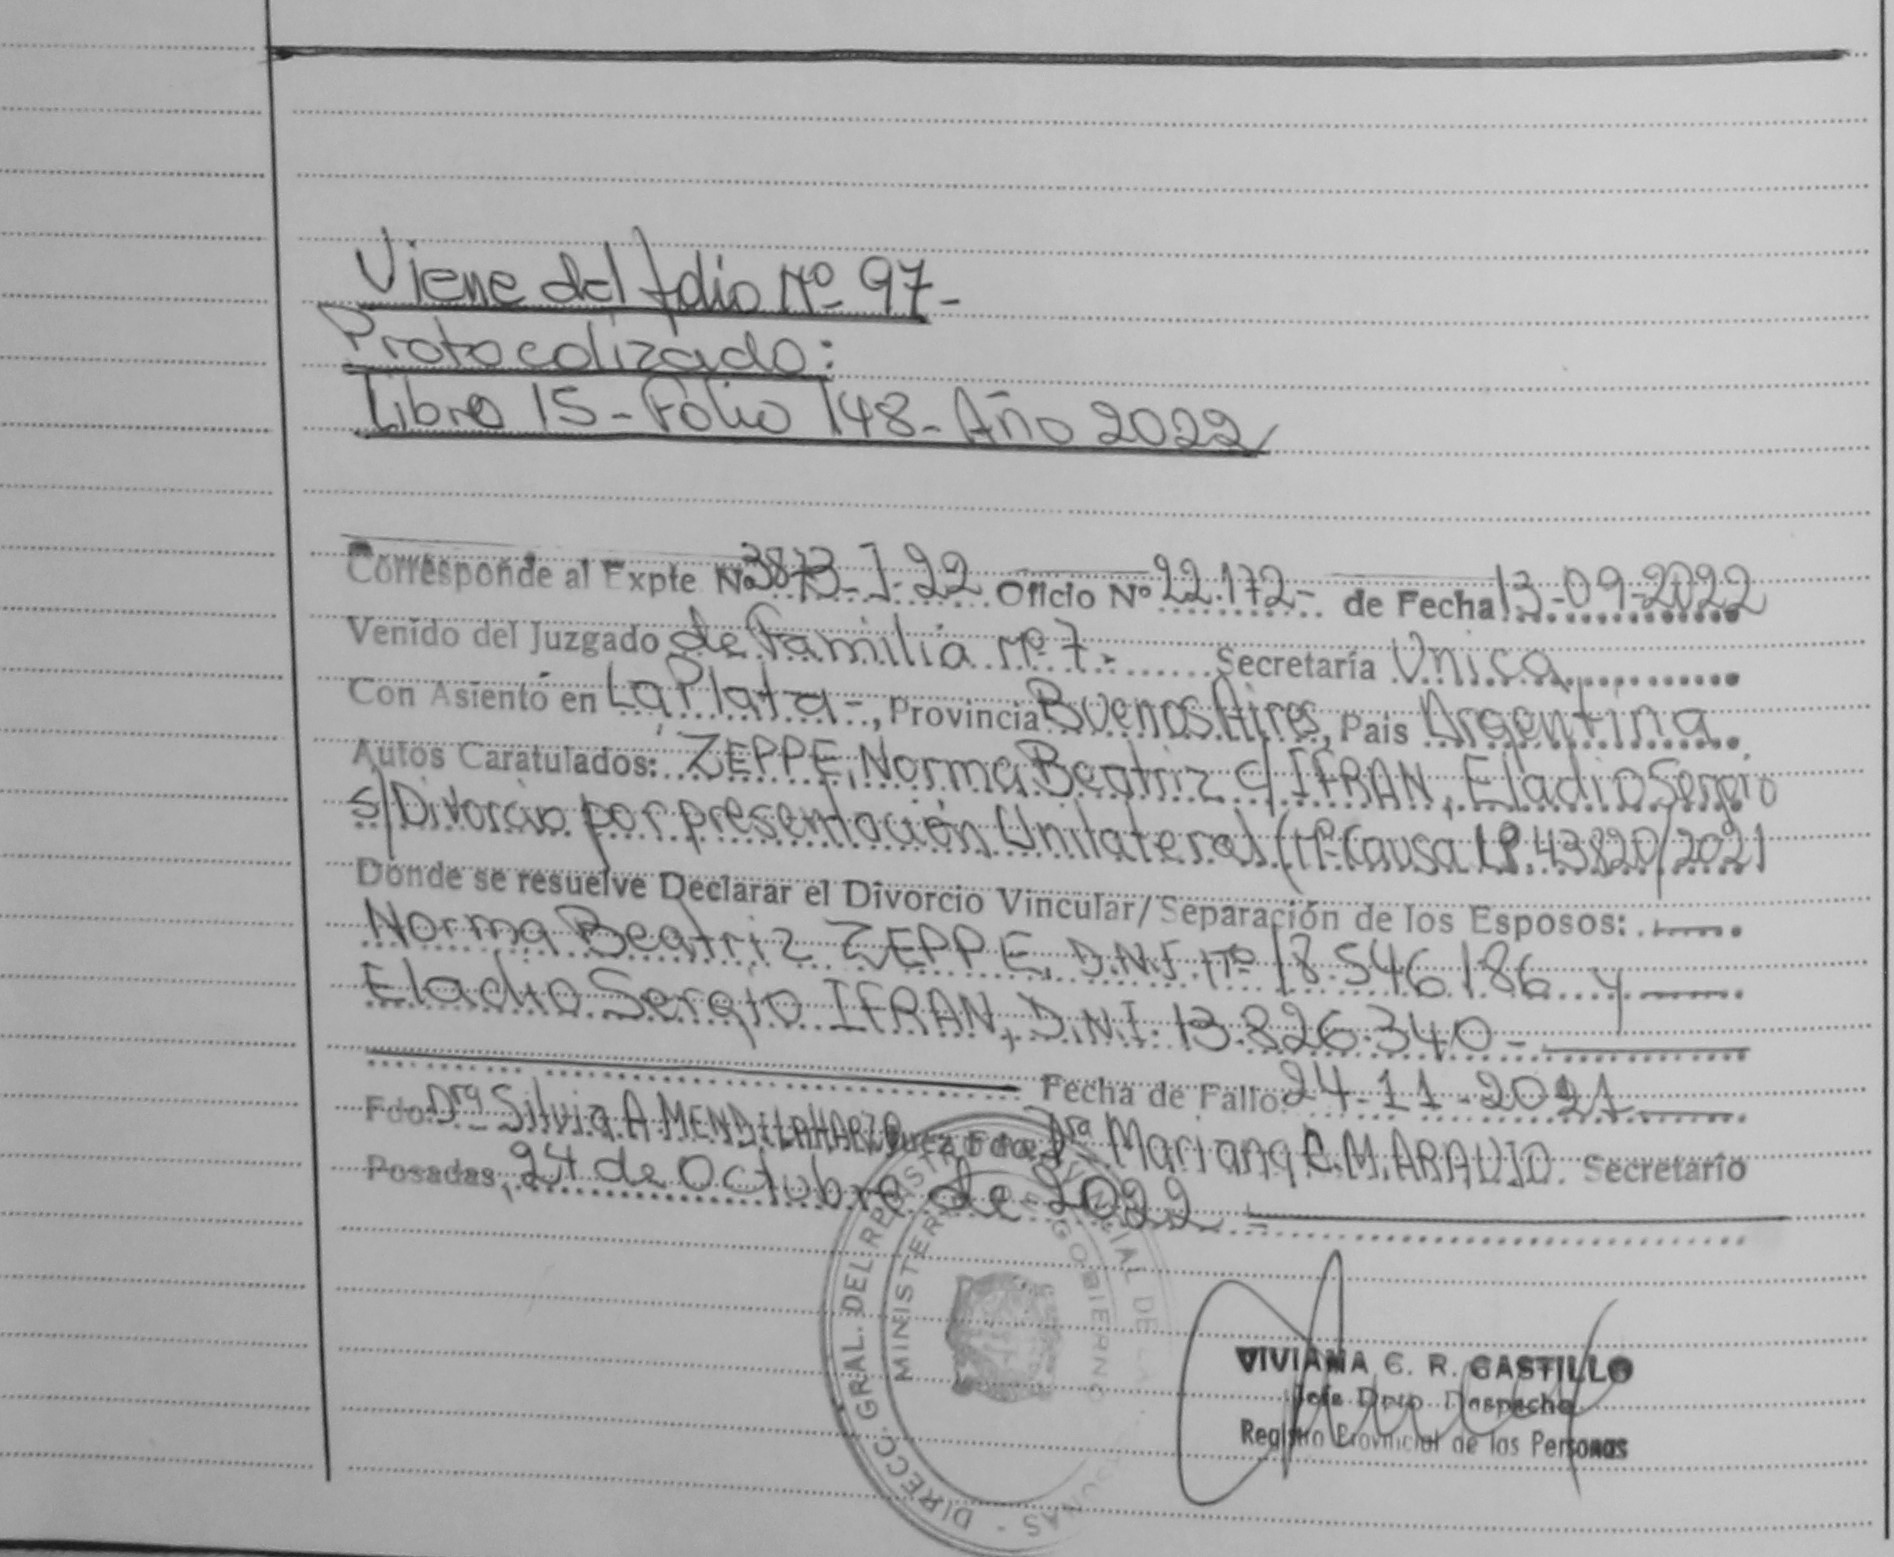 Viene del folio Nº 97-
Protocolizado:
Libro 15 - Folio 148 - Año 2022
Corresponde al Expte Nº 3873-I-22 Oficio Nº 22.172- de Fecha 13-09-2022
Venido del Juzgado de Familia Nº 7- Secretaría Unica
Con Asiento en La Plata-, Provincia Buenos Aires, Pais Argentina.
Autos Caratulados: ZEPPE, Norma Beatriz c/ IFRAN, Eladio Sergio
s/Divorcio por presentación Unilateral (Nº Causa LP.43820/2021
Donde se resuelve Declarar el Divorcio Vincular/Separación de los Esposos:
Norma Beatriz ZEPPE, D.N.I. Nº 18.546.186 y
Eladio Sergio IFRAN, D.N.I. 13.826.340-
Fecha de Fallo: 24-11-2021
Fdo. Dra Silvia A. MENDILAHARZO Juez Fdo. Dra Mariana C.M. ARAUJO. Secretario
Posadas, 24 de Octubre de 2022
DIRECC. GRAL. DEL REGISTRO PROVINCIAL DE LAS PERSONAS
MINISTERIO DE GOBIERNO
VIVIANA C. R. CASTILLO
Jefe Dpto Despacho
Registro Provincial de las Personas